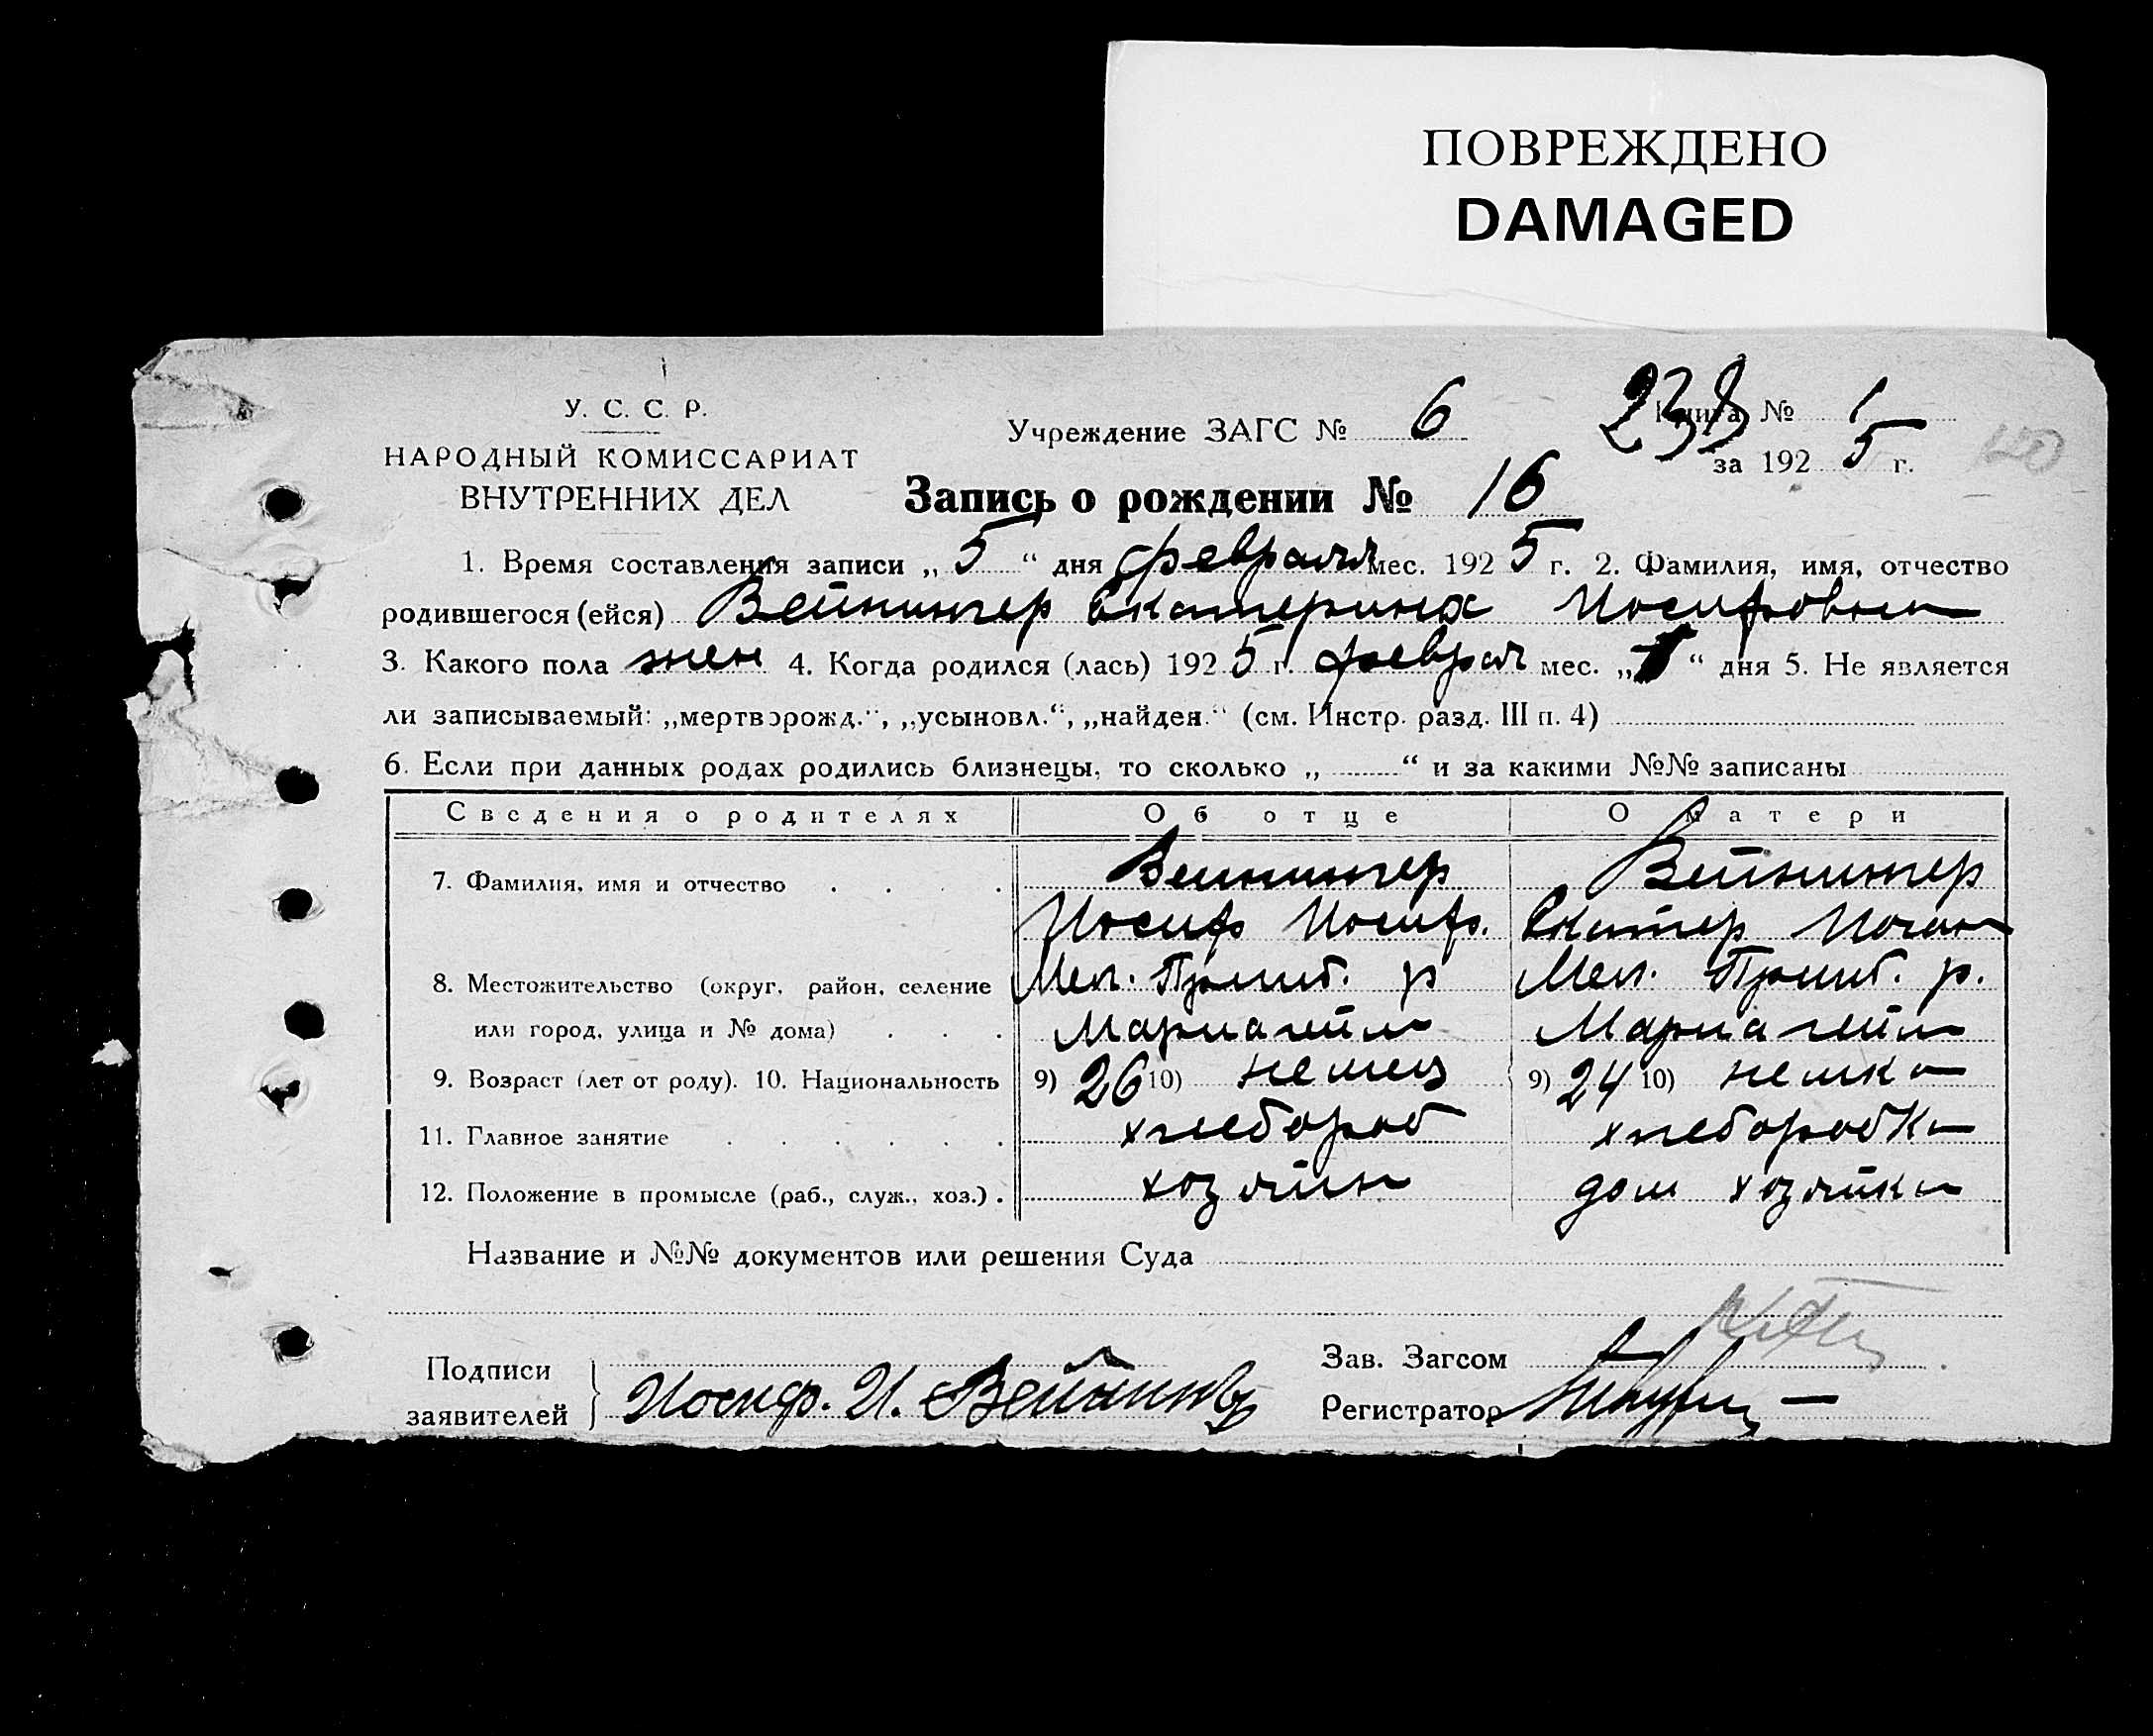 ПОВРЕЖДЕНО
DAMAGED
У. С. С. Р.
НАРОДНЫЙ КОМИССАРИАТ
ВНУТРЕННИХ ДЕЛ
Учреждение ЗАГС № 6
238
Книга № 1
за 1925 г.
Запись о рождении № 16
1. Время составления записи „5“ дня февраля мес. 1925 г. 2. Фамилия, имя, отчество
родившегося (ейся) Вейнингер Екатерина Иосифовна
3. Какого пола жен 4. Когда родился (лась) 1925 г. феврал мес. „1“ дня 5. Не является
ли записываемый: „мертворожд.“, „усыновл.“, „найден.“ (см. Инстр. разд. III п. 4)
6. Если при данных родах родились близнецы, то сколько „ “ и за какими №№ записаны
Сведения о родителях Об отце О матери
7. Фамилия, имя и отчество Вейнингер Вейнингер
Иосиф Иосиф. Екатер Иоган
8. Местожительство (округ, район, селение Мел. Пришиб. р Мел. Пришиб. р.
или город, улица и № дома) Мариагейм Мариагейм
9. Возраст (лет от роду). 10. Национальность 9) 26 10) немец 9) 24 10) немка
11. Главное занятие хлебороб хлеборобка
12. Положение в промысле (раб., служ., хоз.) хозяин дом хозяйка
Название и №№ документов или решения Суда
Подписи
заявителей
Иосиф. И. Вейнингер
Зав. Загсом
Регистратор